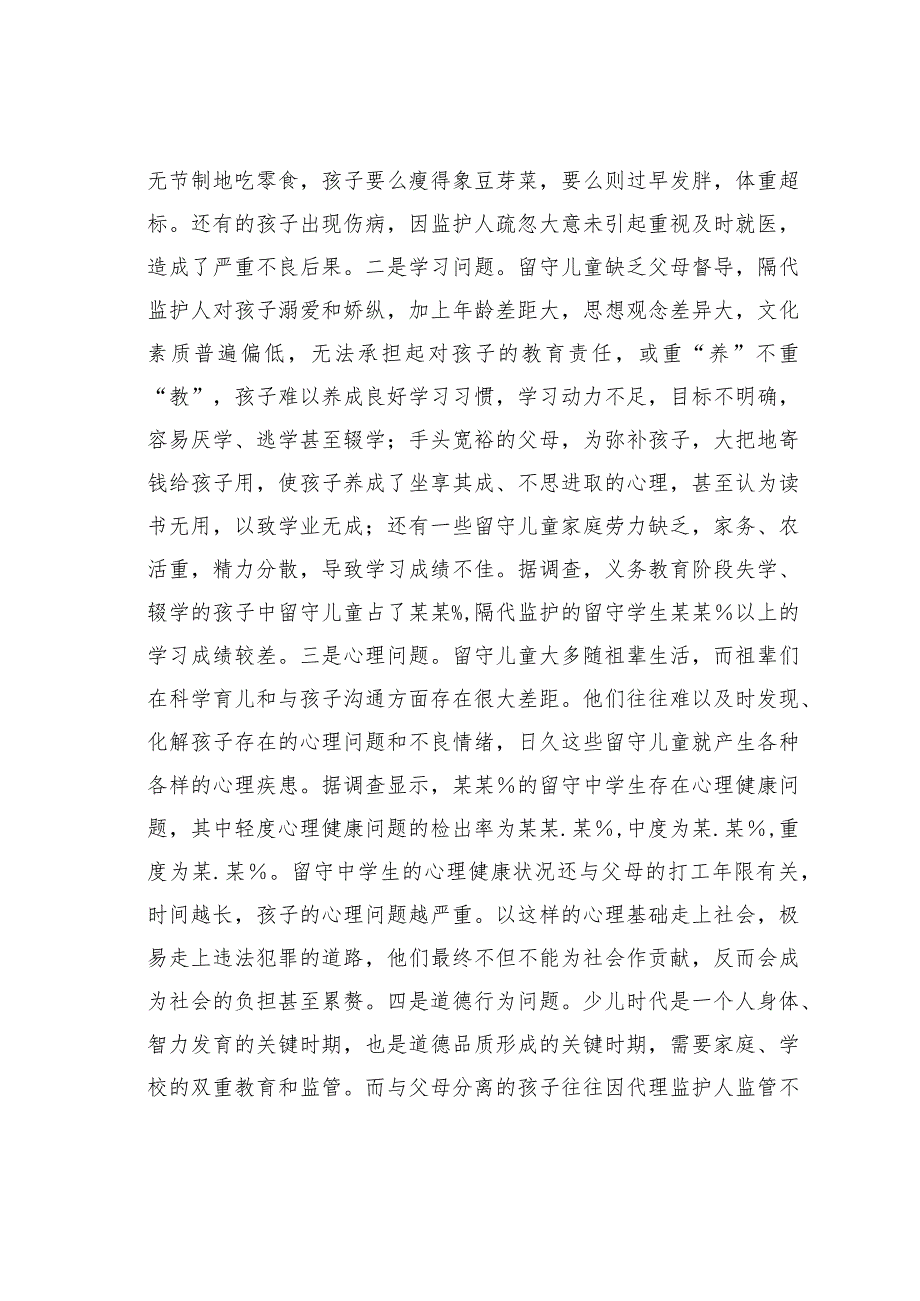 无节制地吃零食，孩子要么瘦得象豆芽菜，要么则过早发胖，体重超
标。还有的孩子出现伤病，因监护人疏忽大意未引起重视及时就医，
造成了严重不良后果。二是学习问题。留守儿童缺乏父母督导，隔代
监护人对孩子溺爱和娇纵，加上年龄差距大，思想观念差异大，文化
素质普遍偏低，无法承担起对孩子的教育责任，或重“养”不重
“教”，孩子难以养成良好学习习惯，学习动力不足，目标不明确，
容易厌学、逃学甚至辍学；手头宽裕的父母，为弥补孩子，大把地寄
钱给孩子用，使孩子养成了坐享其成、不思进取的心理，甚至认为读
书无用，以致学业无成；还有一些留守儿童家庭劳力缺乏，家务、农
活重，精力分散，导致学习成绩不佳。据调查，义务教育阶段失学、
辍学的孩子中留守儿童占了某某%,隔代监护的留守学生某某%以上的
学习成绩较差。三是心理问题。留守儿童大多随祖辈生活，而祖辈们
在科学育儿和与孩子沟通方面存在很大差距。他们往往难以及时发现、
化解孩子存在的心理问题和不良情绪，日久这些留守儿童就产生各种
各样的心理疾患。据调查显示，某某%的留守中学生存在心理健康问
题，其中轻度心理健康问题的检出率为某某.某%,中度为某.某%,重
度为某.某%。留守中学生的心理健康状况还与父母的打工年限有关，
时间越长，孩子的心理问题越严重。以这样的心理基础走上社会，极
易走上违法犯罪的道路，他们最终不但不能为社会作贡献，反而会成
为社会的负担甚至累赘。四是道德行为问题。少儿时代是一个人身体、
智力发育的关键时期，也是道德品质形成的关键时期，需要家庭、学
校的双重教育和监管。而与父母分离的孩子往往因代理监护人监管不